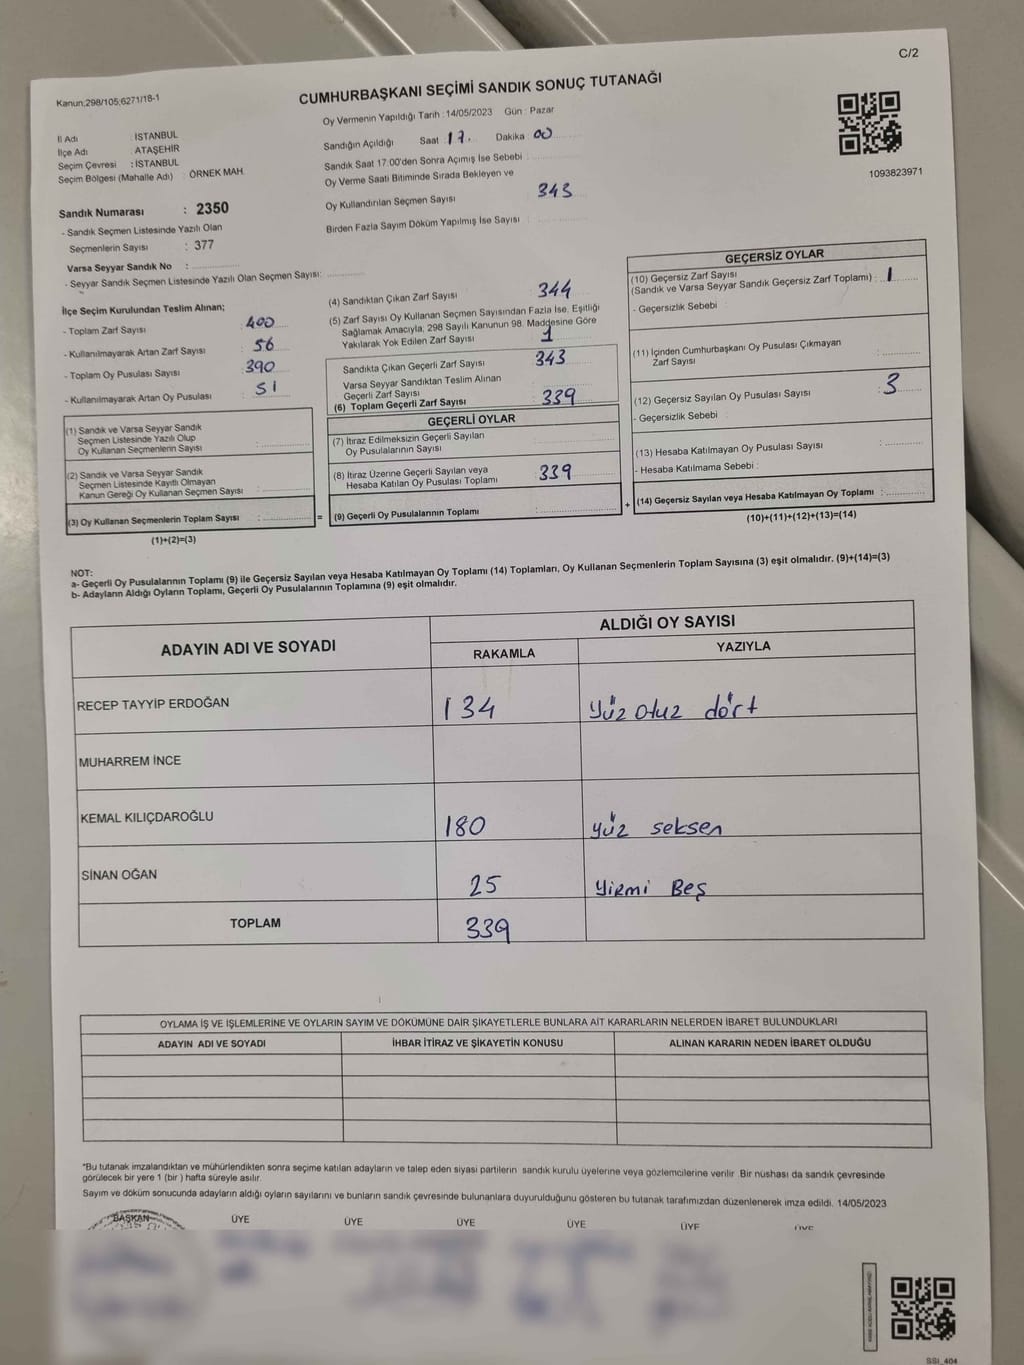 C/2
Kanun;298/105;6271/18-1
CUMHURBAŞKANI SEÇİMİ SANDIK SONUÇ TUTANAĞI
Oy Vermenin Yapıldığı Tarih : 14/05/2023 Gün : Pazar
İl Adı : İSTANBUL
İlçe Adı : ATAŞEHİR
Seçim Çevresi : İSTANBUL
Seçim Bölgesi (Mahalle Adı) : ÖRNEK MAH.
Sandığın Açıldığı Saat : 17. Dakika : 00
Sandık Saat 17:00'den Sonra Açılmış İse Sebebi :
Oy Verme Saati Bitiminde Sırada Bekleyen ve
Oy Kullandırılan Seçmen Sayısı : 343
Birden Fazla Sayım Döküm Yapılmış İse Sayısı :
1093823971
Sandık Numarası : 2350
- Sandık Seçmen Listesinde Yazılı Olan
Seçmenlerin Sayısı : 377
Varsa Seyyar Sandık No :
- Seyyar Sandık Seçmen Listesinde Yazılı Olan Seçmen Sayısı:
İlçe Seçim Kurulundan Teslim Alınan;
- Toplam Zarf Sayısı : 400
- Kullanılmayarak Artan Zarf Sayısı : 56
- Toplam Oy Pusulası Sayısı : 390
- Kullanılmayarak Artan Oy Pusulası : 51
(4) Sandıktan Çıkan Zarf Sayısı : 344
(5) Zarf Sayısı Oy Kullanan Seçmen Sayısından Fazla İse, Eşitliği
Sağlamak Amacıyla, 298 Sayılı Kanunun 98. Maddesine Göre
Yakılarak Yok Edilen Zarf Sayısı : 1
Sandıkta Çıkan Geçerli Zarf Sayısı : 343
Varsa Seyyar Sandıktan Teslim Alınan
Geçerli Zarf Sayısı
(6) Toplam Geçerli Zarf Sayısı : 339
GEÇERLİ OYLAR
(7) İtiraz Edilmeksizin Geçerli Sayılan
Oy Pusulalarının Sayısı :
(8) İtiraz Üzerine Geçerli Sayılan veya
Hesaba Katılan Oy Pusulası Toplamı : 339
(9) Geçerli Oy Pusulalarının Toplamı :
GEÇERSİZ OYLAR
(10) Geçersiz Zarf Sayısı
(Sandık ve Varsa Seyyar Sandık Geçersiz Zarf Toplamı) : 1
- Geçersizlik Sebebi :
(11) İçinden Cumhurbaşkanı Oy Pusulası Çıkmayan
Zarf Sayısı :
(12) Geçersiz Sayılan Oy Pusulası Sayısı : 3
- Geçersizlik Sebebi :
(13) Hesaba Katılmayan Oy Pusulası Sayısı :
- Hesaba Katılmama Sebebi :
(14) Geçersiz Sayılan veya Hesaba Katılmayan Oy Toplamı :
(10)+(11)+(12)+(13)=(14)
(1) Sandık ve Varsa Seyyar Sandık
Seçmen Listesinde Yazılı Olup
Oy Kullanan Seçmenlerin Sayısı :
(2) Sandık ve Varsa Seyyar Sandık
Seçmen Listesinde Kayıtlı Olmayan
Kanun Gereği Oy Kullanan Seçmen Sayısı :
(3) Oy Kullanan Seçmenlerin Toplam Sayısı : = +
(1)+(2)=(3)
NOT:
a- Geçerli Oy Pusulalarının Toplamı (9) ile Geçersiz Sayılan veya Hesaba Katılmayan Oy Toplamı (14) Toplamları, Oy Kullanan Seçmenlerin Toplam Sayısına (3) eşit olmalıdır. (9)+(14)=(3)
b- Adayların Aldığı Oyların Toplamı, Geçerli Oy Pusulalarının Toplamına (9) eşit olmalıdır.
ADAYIN ADI VE SOYADI ALDIĞI OY SAYISI
RAKAMLA YAZIYLA
RECEP TAYYİP ERDOĞAN 134 Yüz otuz dört
MUHARREM İNCE
KEMAL KILIÇDAROĞLU 180 yüz seksen
SİNAN OĞAN 25 Yirmi Beş
TOPLAM 339
OYLAMA İŞ VE İŞLEMLERİNE VE OYLARIN SAYIM VE DÖKÜMÜNE DAİR ŞİKAYETLERLE BUNLARA AİT KARARLARIN NELERDEN İBARET BULUNDUKLARI
ADAYIN ADI VE SOYADI İHBAR İTİRAZ VE ŞİKAYETİN KONUSU ALINAN KARARIN NEDEN İBARET OLDUĞU
*Bu tutanak imzalandıktan ve mühürlendikten sonra seçime katılan adayların ve talep eden siyasi partilerin sandık kurulu üyelerine veya gözlemcilerine verilir .Bir nüshası da sandık çevresinde
görülecek bir yere 1 (bir ) hafta süreyle asılır.
Sayım ve döküm sonucunda adayların aldığı oyların sayılarını ve bunların sandık çevresinde bulunanlara duyurulduğunu gösteren bu tutanak tarafımızdan düzenlenerek imza edildi. 14/05/2023
BAŞKAN ÜYE ÜYE ÜYE ÜYE ÜYE ÜYE
SSI_404